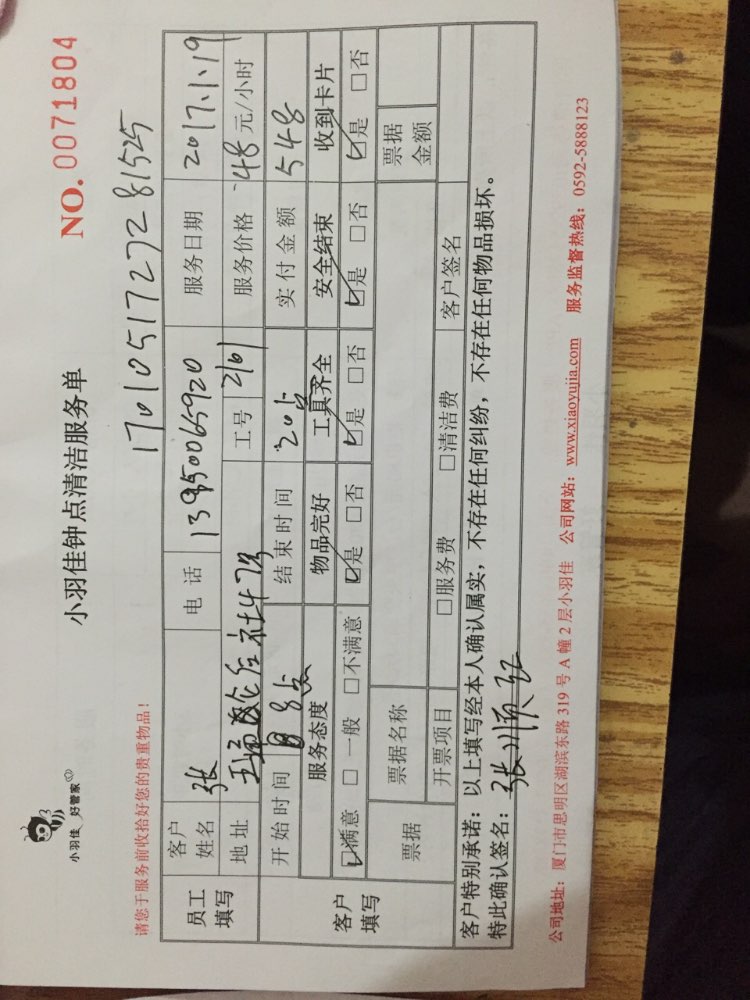 小羽佳 好管家
小羽佳钟点清洁服务单
NO. 0071804
请您于服务前收拾好您的贵重物品！
17010517272 81525
员工填写 客户姓名 张 电话 13950065920 服务日期 2017.1.19
地址 后社47号 工号 2161 服务价格 48 元/小时
客户填写 开始时间 8点 结束时间 20点 实付金额 548
服务态度 物品完好 工具齐全 安全结束 收到卡片
☑满意 □一般 □不满意 ☑是 □否 ☑是 □否 ☑是 □否 ☑是 □否
票据 票据名称 票据金额
开票项目 □服务费 □清洁费 客户签名
客户特别承诺：以上填写经本人确认属实，不存在任何纠纷，不存在任何物品损坏。
特此确认签名：张顺
公司地址：厦门市思明区湖滨东路 319 号 A 幢 2 层小羽佳 公司网站：www.xiaoyujia.com 服务监督热线：0592-5888123